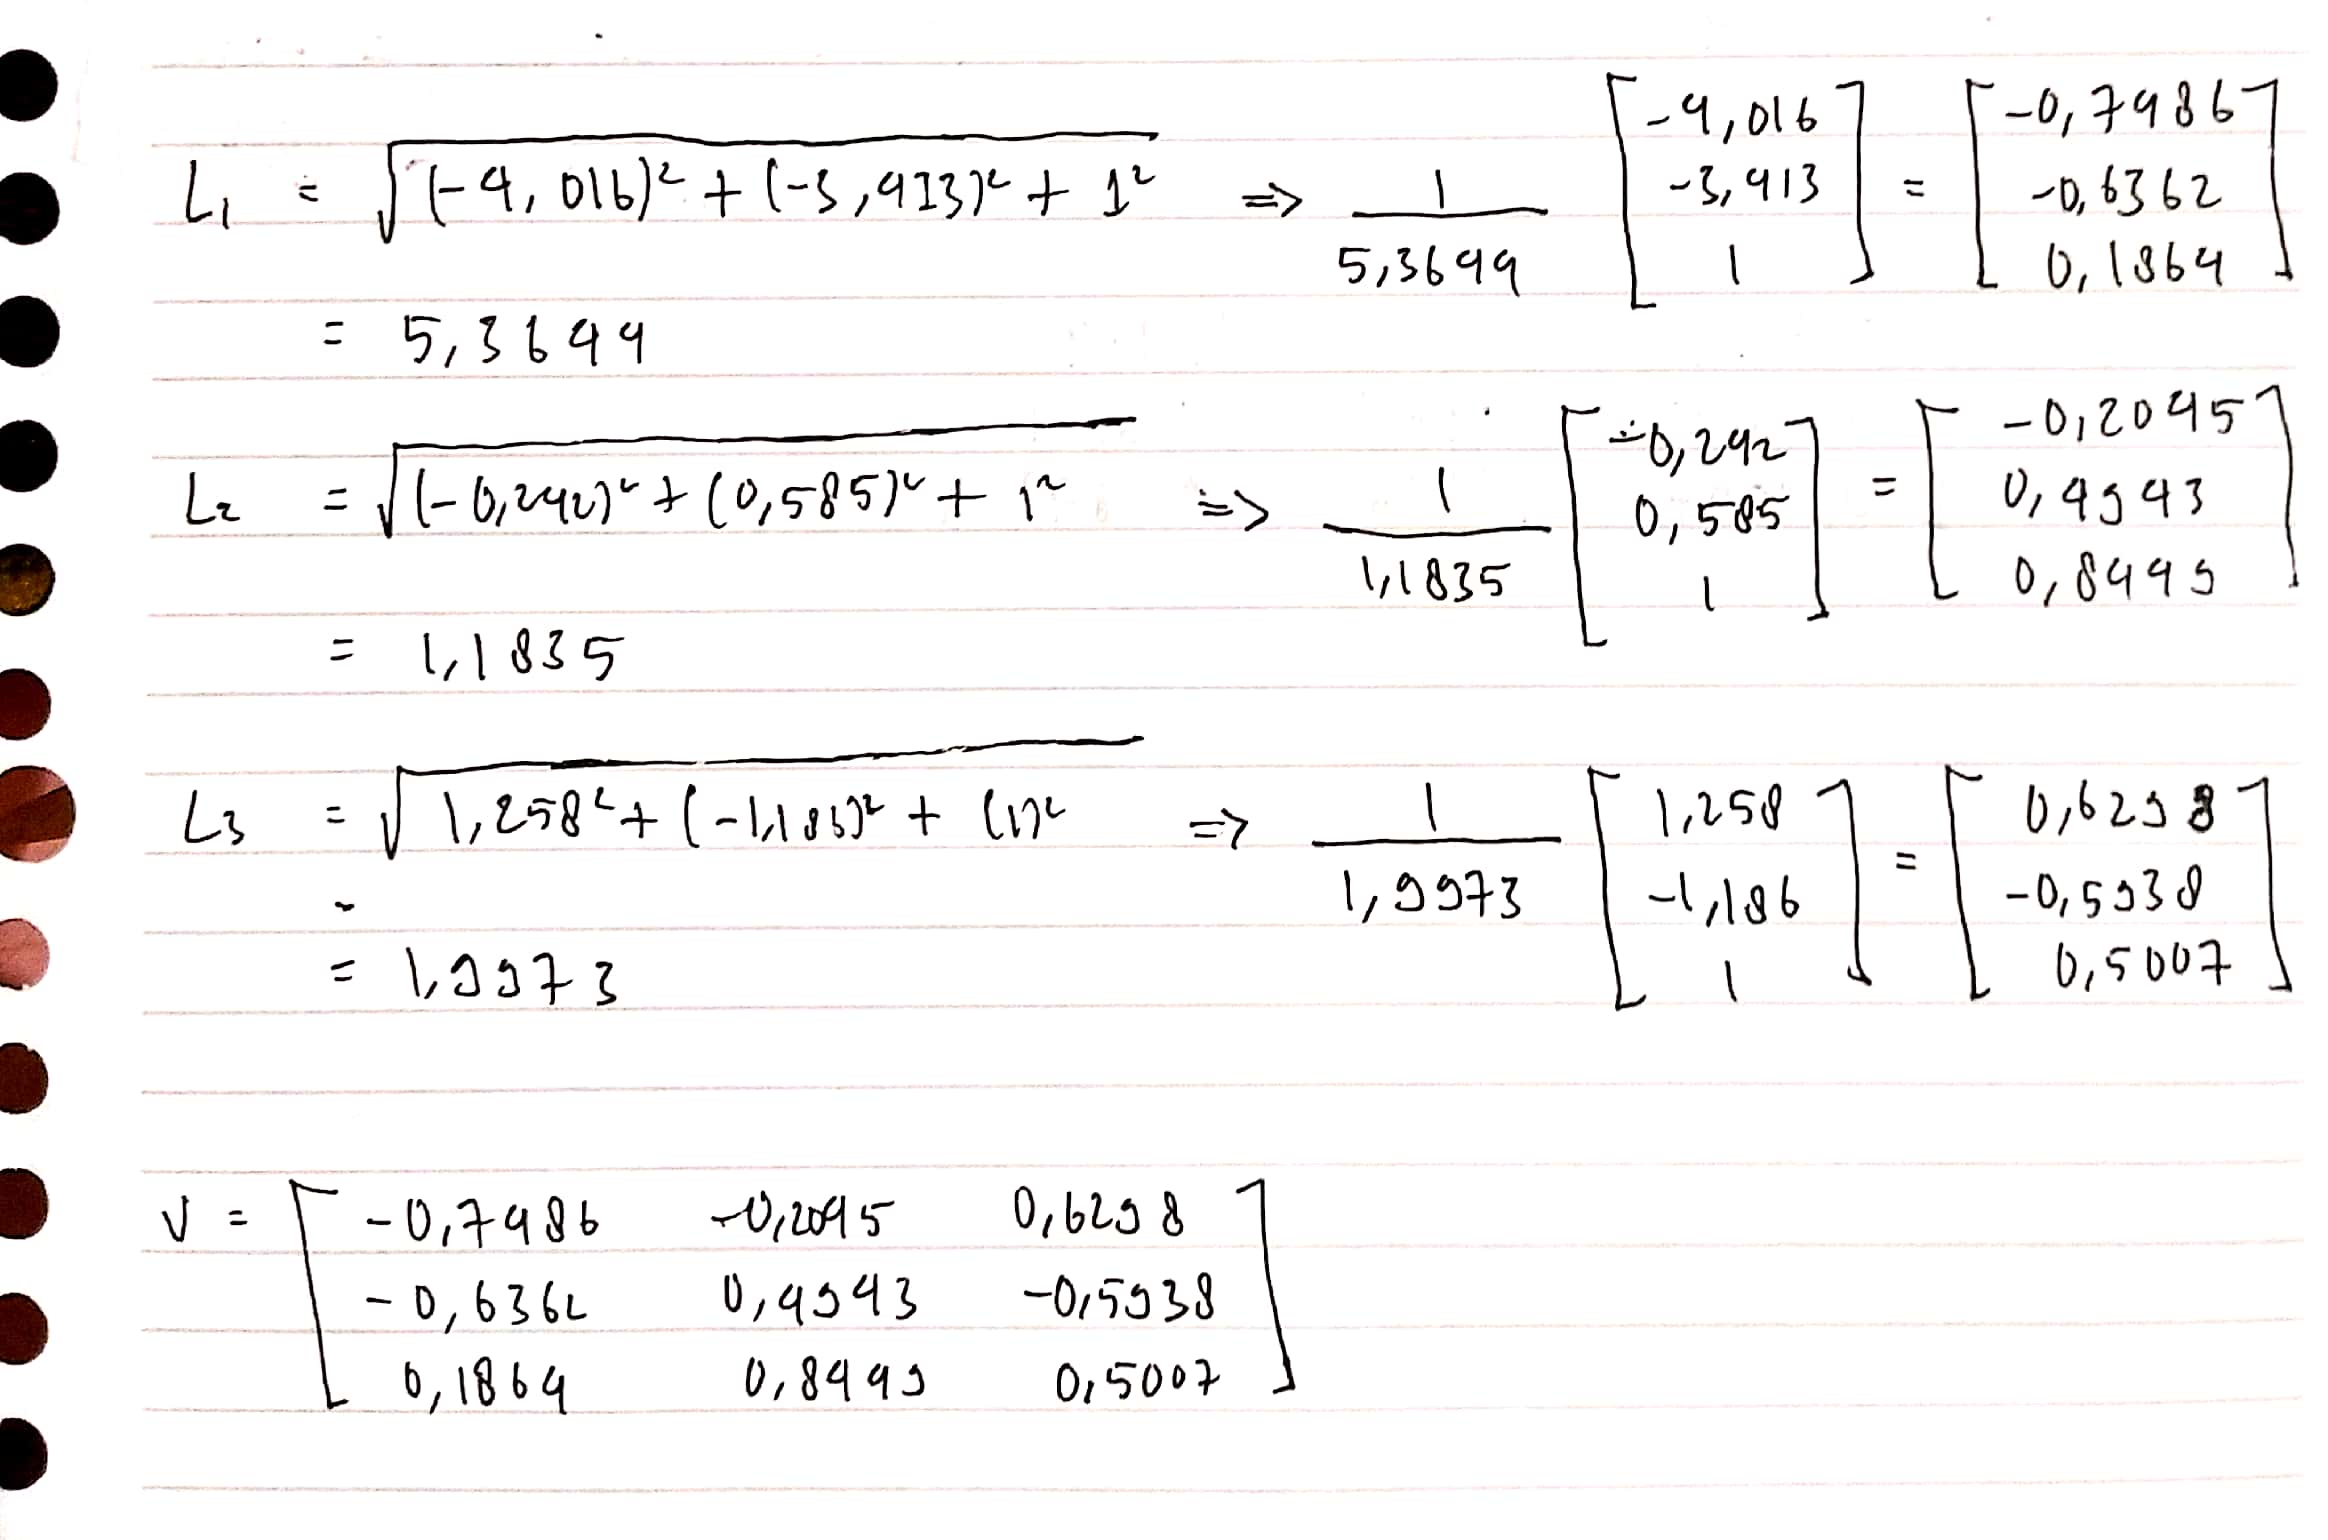 L₁ = √(-4,016)² + (-3,413)² + 1² => 1/5,3644 [-4,016 -3,413 1] = [-0,7486 -0,6362 0,1864]
= 5,3644
L₂ = √(-0,242)² + (0,585)² + 1² => 1/1,1835 [-0,242 0,585 1] = [-0,2045 0,4943 0,8449]
= 1,1835
L₃ = √1,258² + (-1,186)² + (1)² => 1/1,9973 [1,258 -1,186 1] = [0,6298 -0,5938 0,5007]
= 1,9973
V = [-0,7486 -0,2045 0,6298
-0,6362 0,4943 -0,5938
0,1864 0,8449 0,5007]